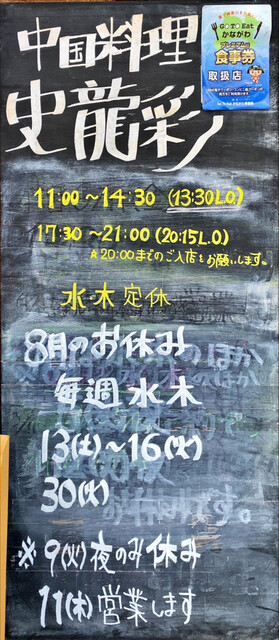 GO TO Eat
かながわ
プレミアム付
食事券
取扱店
中国料理
史龍彩
11:00～14:30 (13:30L.O.)
17:30～21:00 (20:15L.O.)
☆20:00までのご入店をお願いします。
水・木 定休
8月のお休み
毎週 水 木
13(土)～16(火)
30(火)
※9(火)夜のみ休み
11(木)営業します